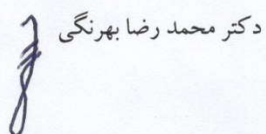 دکتر محمد رضا بهرنگی